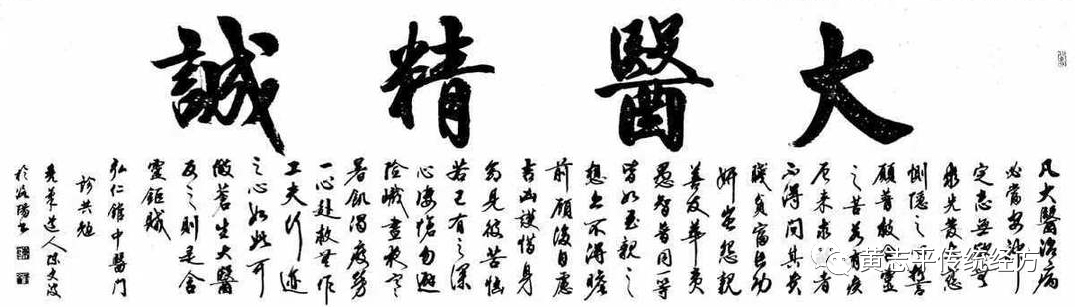 大醫精誠
凡大醫治病
必當安神
定志無欲無
求先發大慈
惻隱之心誓
願普救含靈
之苦若有疾
厄來求救者
不得問其貴
賤貧富長幼
妍蚩怨親
善友華夷
愚智普同一等
皆如至親之
想亦不得瞻
前顧後自慮
吉凶護惜身
命見彼苦惱
若己有之深
心悽愴勿避
險巇晝夜寒
暑飢渴疲勞
一心赴救無作
工夫行迹
之心如此可
做蒼生大醫
反之則是含
靈鉅賊
弘仁館中醫門
診共勉
道人陳文
於洛陽書
黄志平传统经方